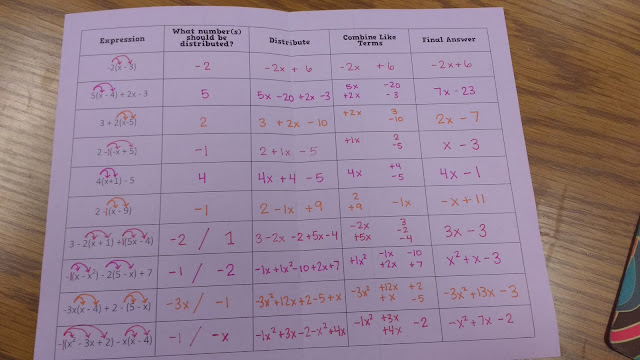 Expression | What number(s) should be distributed? | Distribute | Combine Like Terms | Final Answer
-2(x - 3) | -2 | -2x + 6 | -2x + 6 | -2x + 6
5(x - 4) + 2x - 3 | 5 | 5x - 20 + 2x - 3 | 5x -20 +2x -3 | 7x - 23
3 + 2(x-5) | 2 | 3 + 2x - 10 | +2x 3 -10 | 2x - 7
2 -1(-x + 5) | -1 | 2 + 1x - 5 | +1x 2 -5 | x - 3
4(x+1) - 5 | 4 | 4x + 4 - 5 | 4x +4 -5 | 4x - 1
2 -1(x - 9) | -1 | 2 - 1x + 9 | 2 +9 -1x | -x + 11
3 - 2(x + 1) +1(5x - 4) | -2 / 1 | 3 - 2x - 2 + 5x - 4 | -2x +5x 3 -2 -4 | 3x - 3
-1(x - x²) - 2(5 - x) + 7 | -1 / -2 | -1x + 1x² - 10 + 2x + 7 | +1x² -1x +2x -10 +7 | x² + x - 3
-3x(x - 4) + 2 - (5 - x) | -3x / -1 | -3x² + 12x + 2 - 5 + x | -3x² +12x + x +2 -5 | -3x² + 13x - 3
-1(x² - 3x + 2) - x(x - 4) | -1 / -x | -1x² + 3x - 2 - x² + 4x | -1x² +3x +4x -2 | -x² + 7x - 2